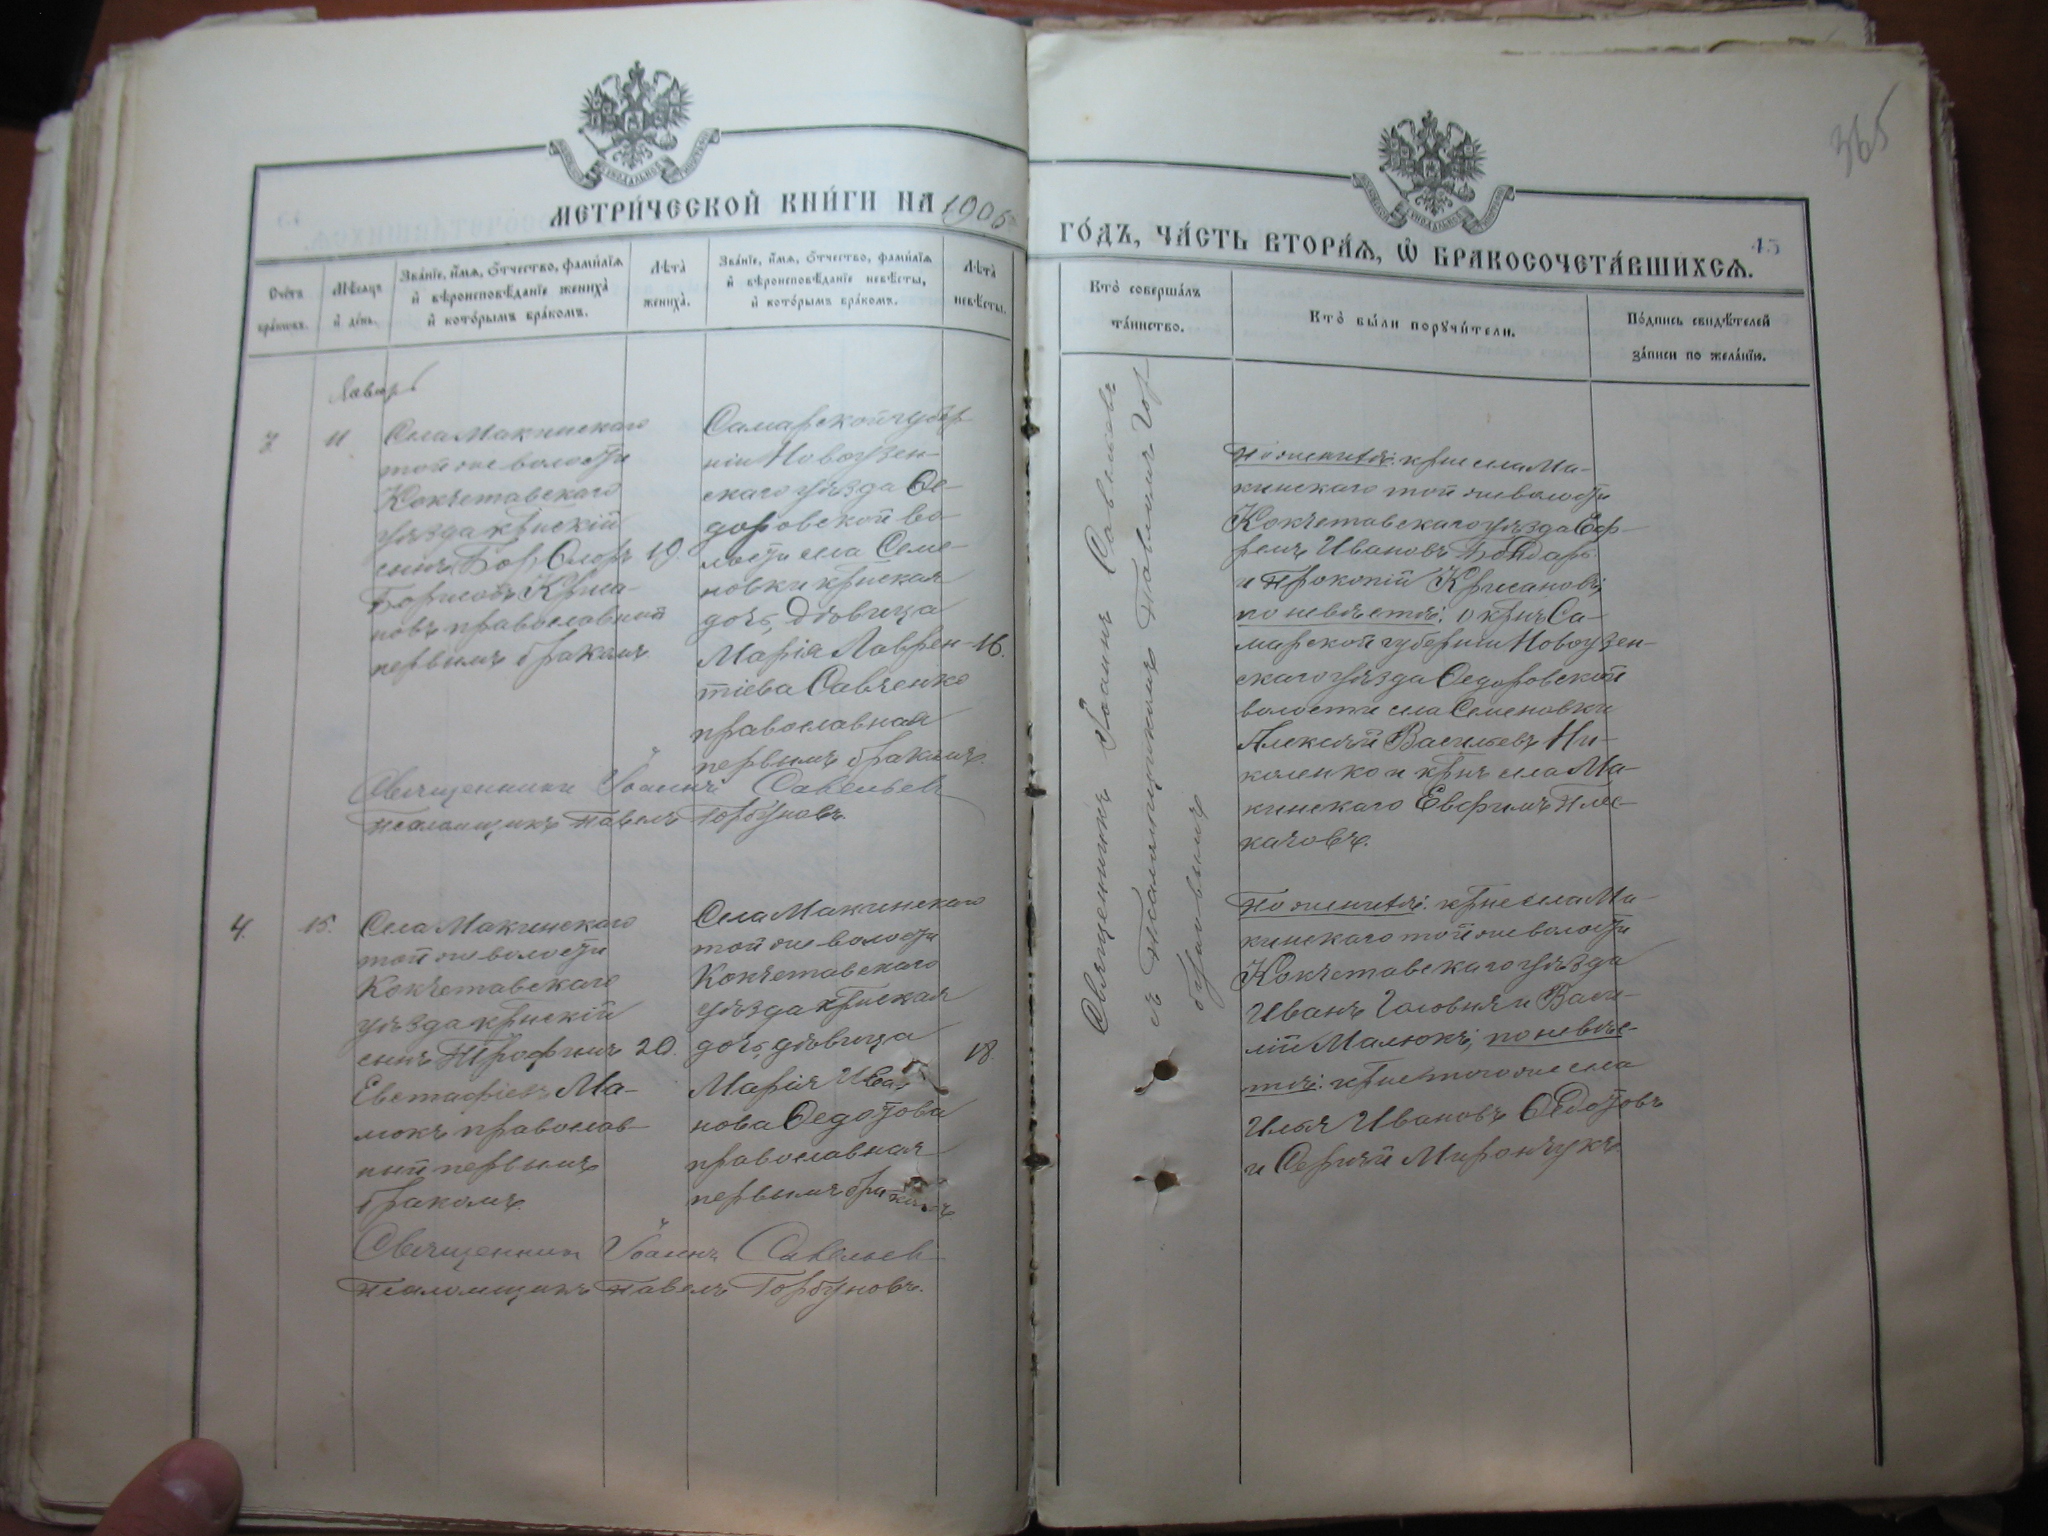 365
МЕТРИ́ЧЕСКОЙ КНИ́ГИ НА 1906
ГО́ДЪ, ЧА́СТЬ ВТОРА́Ѧ, Ѽ БРАКОСОЧЕТА́ВШИХСѦ.
45
Сче́тъ бра́ковъ.
Мѣ́сѧцъ и҆ де́нь.
Зва́нїе, и҆́мѧ, ѻ҆́тчество, фами́лїѧ
и҆ вѣроисповѣ́данїе жениха̀
и҆ кото́рымъ бра́комъ.
Лѣ́та жениха̀.
Зва́нїе, и҆́мѧ, ѻ҆́тчество, фами́лїѧ
и҆ вѣроисповѣ́данїе невѣ́сты,
и҆ кото́рымъ бра́комъ.
Лѣ́та невѣ́сты.
Кто̀ соверша́лъ
та́инство.
Кто̀ бы́ли порꙋчи́тели.
По́дпись свидѣ́телей
за́писи по жела́нїю.
Январь
3
11
Села Макинскаго
той же волости
Кокчетавскаго
уѣзда кр-нскій
сынъ
Борисовъ Криса-
новъ православный
первымъ бракомъ
19.
Самарской губер-
ніи Новоузен-
скаго уѣзда Ѳе-
доровской во-
лости села Семе-
новки кр-нская
дочь, дѣвица
Марія Лаврен-
тіева Савченко
православная
первымъ бракомъ.
16.
Священникъ Іоаннъ Савельевъ
съ Псаломщикомъ Павломъ Гор-
буновымъ
По женихѣ: кр-не села Ма-
кинскаго той же волости
Кокчетавскаго уѣзда Еф-
ремъ Ивановъ Бондарь
и Прокопій Крисановъ;
по невѣстѣ: кр-нъ Са-
марской губерніи Новоузен-
скаго уѣзда Ѳедоровской
волости села Семеновки
Алексѣй Васильевъ Ни-
коленко и кр-нъ села Ма-
кинскаго Евфимъ Плес-
качовъ.
Священникъ Іоаннъ Савельевъ
Псаломщикъ Павелъ Горбуновъ.
4.
15.
Села Макинскаго
той же волости
Кокчетавскаго
уѣзда кр-нскій
сынъ Трофимъ
Евстафіевъ Ма-
люкъ православ-
ный первымъ
бракомъ.
20.
Села Макинскаго
той же волости
Кокчетавскаго
уѣзда кр-нская
дочь, дѣвица
Марія Ива-
нова Ѳедотова
православная
первымъ бракомъ
18.
По женихѣ: кр-не села Ма-
кинскаго той же волости
Кокчетавскаго уѣзда
Иванъ Головня и Васи-
лій Малюкъ; по невѣс-
тѣ: кр-не того же села
Илья Ивановъ Ѳедотовъ
и Сергѣй Мирончукъ
Священникъ Іоаннъ Савельевъ
Псаломщикъ Павелъ Горбуновъ.